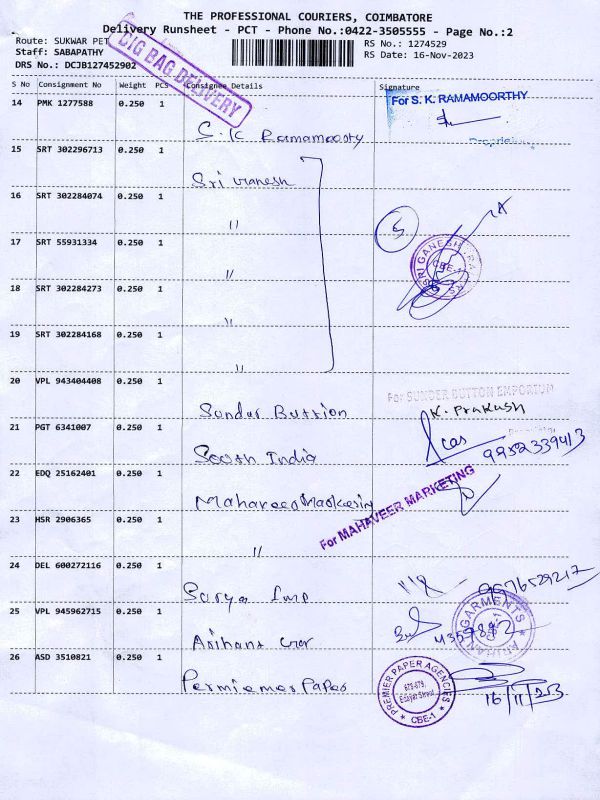 THE PROFESSIONAL COURIERS, COIMBATORE
Delivery Runsheet - PCT - Phone No.:0422-3505555 - Page No.:2
Route: SUKWAR PET
RS No.: 1274529
Staff: SABAPATHY
RS Date: 16-Nov-2023
DRS No.: DCJB127452902
BIG BAG DELIVERY
S No Consignment No Weight PCS Consignee Details Signature
14 PMK 1277588 0.250 1
For S. K. RAMAMOORTHY
S. K Ramamoorty
15 SRT 302296713 0.250 1
Sri Ganesh
16 SRT 302284074 0.250 1
"
5
17 SRT 55931334 0.250 1
SRI GANESH
CBE-1
"
18 SRT 302284273 0.250 1
"
19 SRT 302284168 0.250 1
"
20 VPL 943404408 0.250 1
For SUNDER BUTTON EMPORIUM
Sundar Buttion
K. Prakash
21 PGT 6341007 0.250 1
South India
9952339413
22 EDQ 25162401 0.250 1
Mahaveer Marketing
For MAHAVEER MARKETING
23 HSR 2906365 0.250 1
"
24 DEL 600272116 0.250 1
Surya Imp
25 VPL 945962715 0.250 1
Arihant Gar
ARIHANT GARMENTS
26 ASD 3510821 0.250 1
Permiemer Paper
PREMIER PAPER AGENCIES
CBE-1
16/11/23